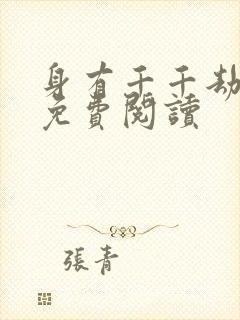 身有千千劫
免費閱讀
張青